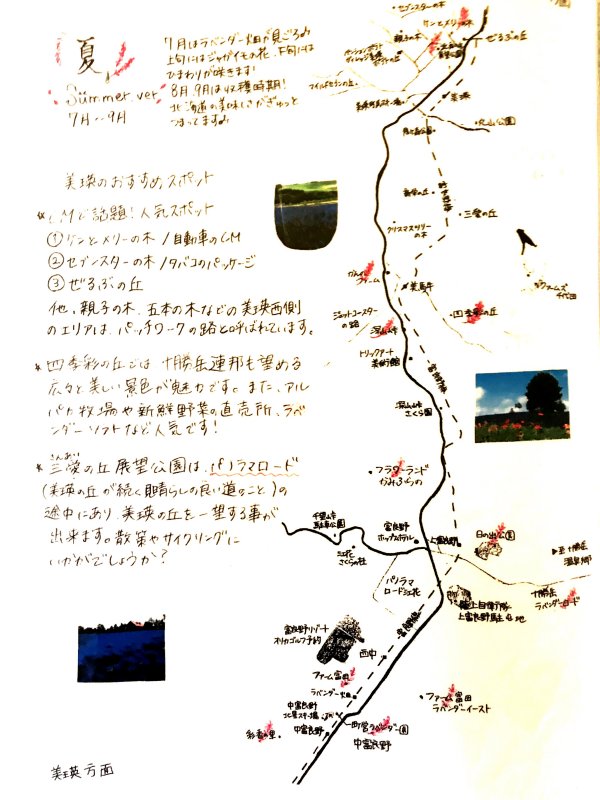 夏
Summer.ver
7月〜9月
7月はラベンダー畑が見ごろ♪
上旬にはジャガイモの花、下旬には
ひまわりが咲きます!
8月、9月は収穫時期!
北海道の美味しさがぎゅっと
つまってます♪
美瑛のおすすめスポット
CMで話題!人気スポット
①ケンとメリーの木/自動車のCM
②セブンスターの木/タバコのパッケージ
③ぜるぶの丘
他、親子の木、五本の木などの美瑛西側
のエリアは、パッチワークの路と呼ばれています。
四季彩の丘では十勝岳連邦も望める
広々と美しい景色が魅力です。また、アル
パカ牧場や新鮮野菜の直売所、ラベ
ンダーソフトなど人気です!
さんあい
三愛の丘展望公園は、パノラマロード
(美瑛の丘が続く見晴らしの良い道のこと)の
途中にあり、美瑛の丘を一望する事が
出来ます。散策やサイクリングに
いかがでしょうか?
美瑛方面
セブンスターの木
ケンとメリーの木
親子の木
ぜるぶの丘
マイルドセブンの丘
美瑛
丸山公園
新栄の丘
三愛の丘
クリスマスツリー
の木
かんのファーム
美馬牛
四季彩の丘
ファームズ
千代田
ジェットコースター
の路
深山峠
トリックアート
美術館
富良野線
深山峠
さくら園
フラワーランド
かみふらの
千望峠
駐車公園
江花
さくらの杜
富良野
ホップスホテル
上富良野
日の出公園
至十勝岳
温泉郷
パノラマ
ロード江花
十勝岳
ラベンダーロード
陸上自衛隊
上富良野駐屯地
富良野線
富良野リゾート
オリカゴルフ予約
西中
ファーム富田
ラベンダー畑
ファーム富田
ラベンダーイースト
中富良野
彩香の里
中富良野
町営ラベンダー園
中富良野